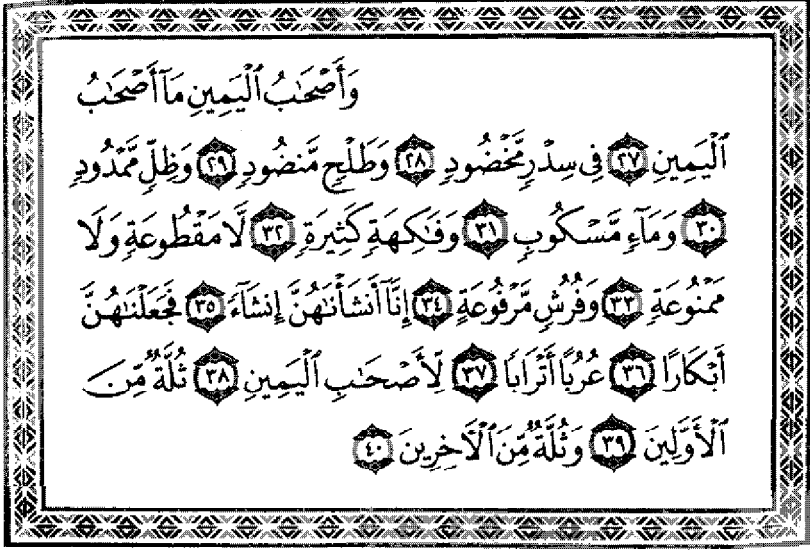 وَأَصْحَٰبُ ٱلْيَمِينِ مَآ أَصْحَٰبُ
ٱلْيَمِينِ ٢٧ فِى سِدْرٍ مَّخْضُودٍ ٢٨ وَطَلْحٍ مَّنضُودٍ ٢٩ وَظِلٍّ مَّمْدُودٍ
٣٠ وَمَآءٍ مَّسْكُوبٍ ٣١ وَفَٰكِهَةٍ كَثِيرَةٍ ٣٢ لَّا مَقْطُوعَةٍ وَلَا
مَمْنُوعَةٍ ٣٣ وَفُرُشٍ مَّرْفُوعَةٍ ٣٤ إِنَّآ أَنشَأْنَٰهُنَّ إِنشَآءً ٣٥ فَجَعَلْنَٰهُنَّ
أَبْكَارًا ٣٦ عُرُبًا أَتْرَابًا ٣٧ لِّأَصْحَٰبِ ٱلْيَمِينِ ٣٨ ثُلَّةٌ مِّنَ
ٱلْأَوَّلِينَ ٣٩ وَثُلَّةٌ مِّنَ ٱلْءَاخِرِينَ ٤٠